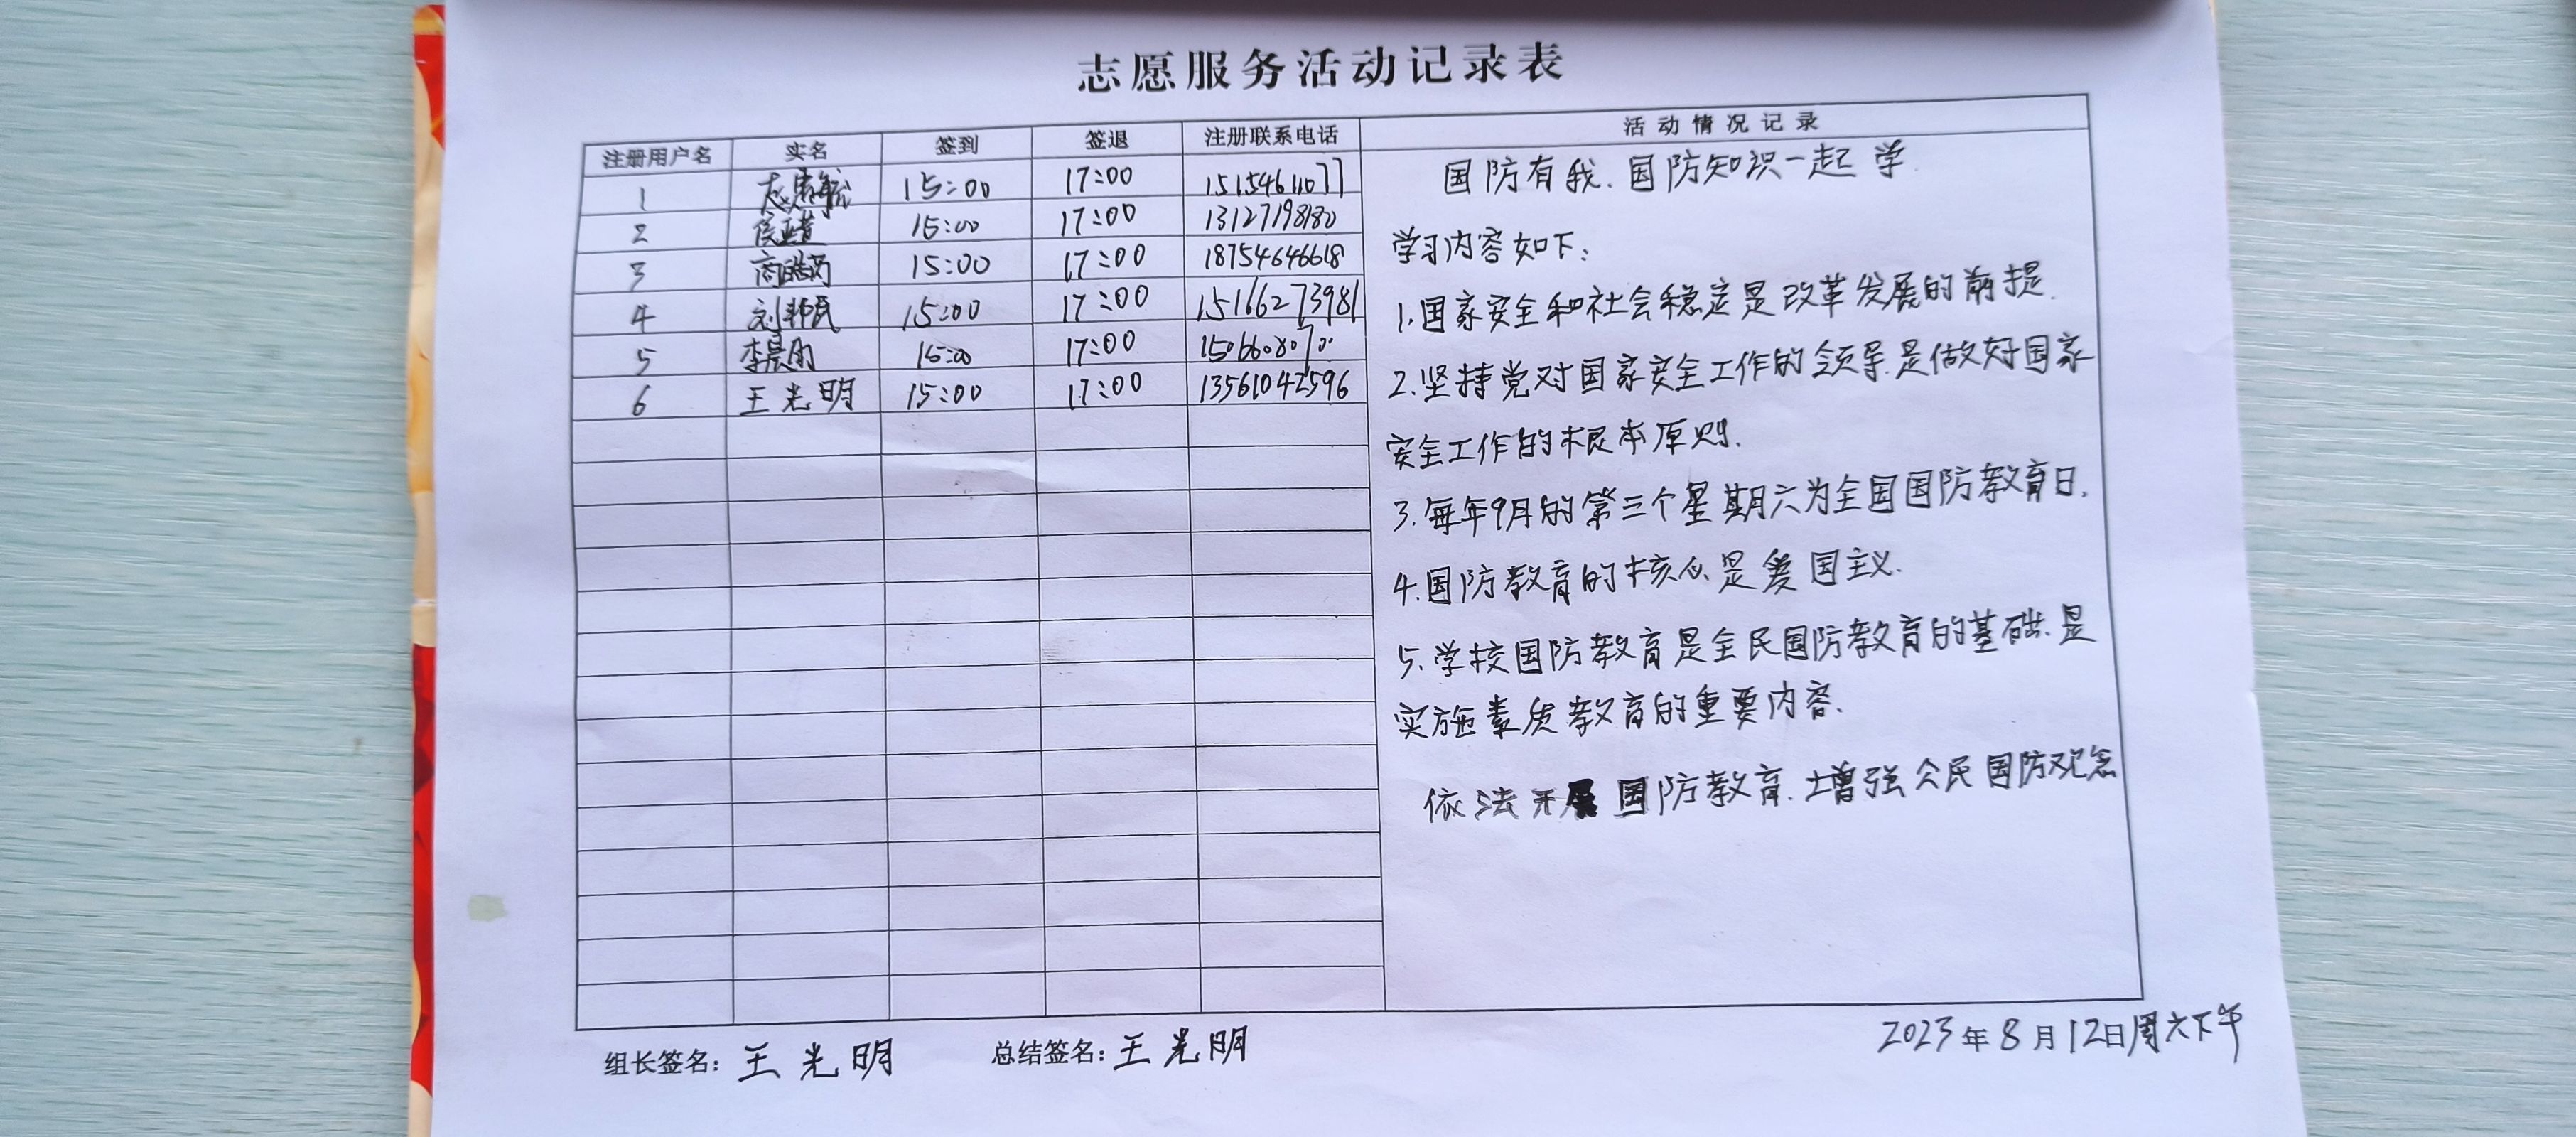 志愿服务活动记录表
注册用户名 实名 签到 签退 注册联系电话 活动情况记录
1 15:00 17:00 15154611077
2 15:00 17:00 13127198180
3 15:00 17:00 18754646618
4 15:00 17:00 15166273981
5 15:00 17:00
6 王光明 15:00 17:00 13561042596
国防有我、国防知识一起学.
学习内容如下:
1.国家安全和社会稳定是改革发展的前提.
2.坚持党对国家安全工作的领导.是做好国家
安全工作的根本原则.
3.每年9月的第三个星期六为全国国防教育日.
4.国防教育的核心是爱国主义.
5.学校国防教育是全民国防教育的基础.是
实施素质教育的重要内容.
依法开展国防教育.增强公民国防观念
组长签名:王光明 总结签名:王光明 2023年8月12日周六下午